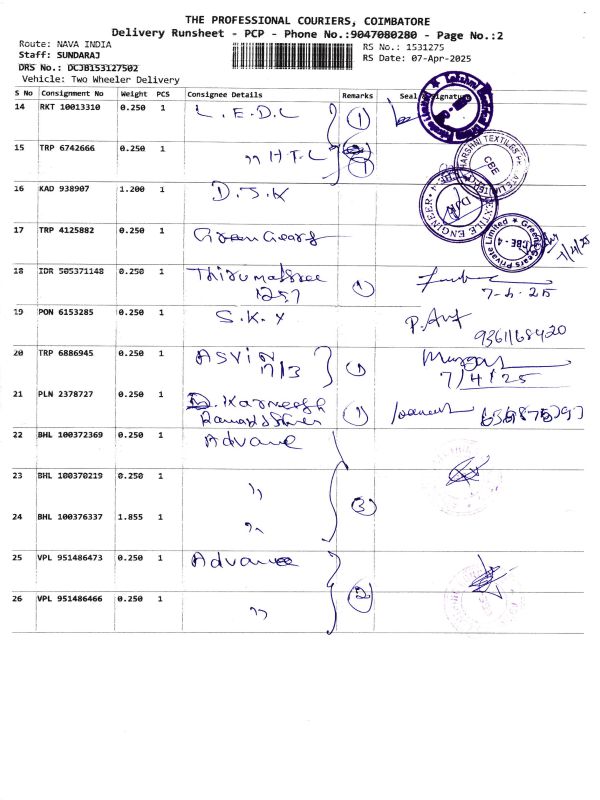 THE PROFESSIONAL COURIERS, COIMBATORE
Delivery Runsheet - PCP - Phone No.:9047080280 - Page No.:2
Route: NAVA INDIA
RS No.: 1531275
Staff: SUNDARAJ
RS Date: 07-Apr-2025
DRS No.: DCJB153127502
Vehicle: Two Wheeler Delivery
S No Consignment No Weight PCS Consignee Details Remarks Seal Signature
14 RKT 10013310 0.250 1 L.E.D.L 1
15 TRP 6742666 0.250 1 ,, H.T.L 1
16 KAD 938907 1.200 1 D.J.K
17 TRP 4125882 0.250 1 Green Gears 7/4/25
18 IDR 505371148 0.250 1 Thirumalshree 1
1257 7-4-25
19 PON 6153285 0.250 1 S.K.Y
20 TRP 6886945 0.250 1 ASVIN 1
17/3 7/4/25
21 PLN 2378727 0.250 1 1
22 BHL 100372369 0.250 1 Advance
23 BHL 100370219 0.250 1 ,, 3
24 BHL 100376337 1.855 1 ,,
25 VPL 951486473 0.250 1 Advance
26 VPL 951486466 0.250 1 ,, 2
HARSHNI TEXTILES
CBE
TEXTILE ENGINEER
Green Gears Private Limited
CBE - 4